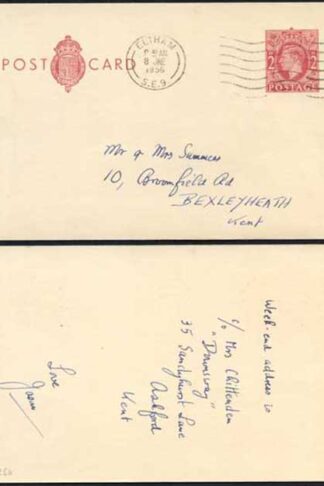 POST CARD
ELTHAM
8 JNE
1956
S.E.9
2 2
POSTAGE
Mr & Mrs Summers
10, Broomfield Rd
BEXLEYHEATH
Kent
Week-end address is
c/o Mrs Chittenden
"Downsway"
35 Sandyhurst Lane
Ashford
Kent
Love